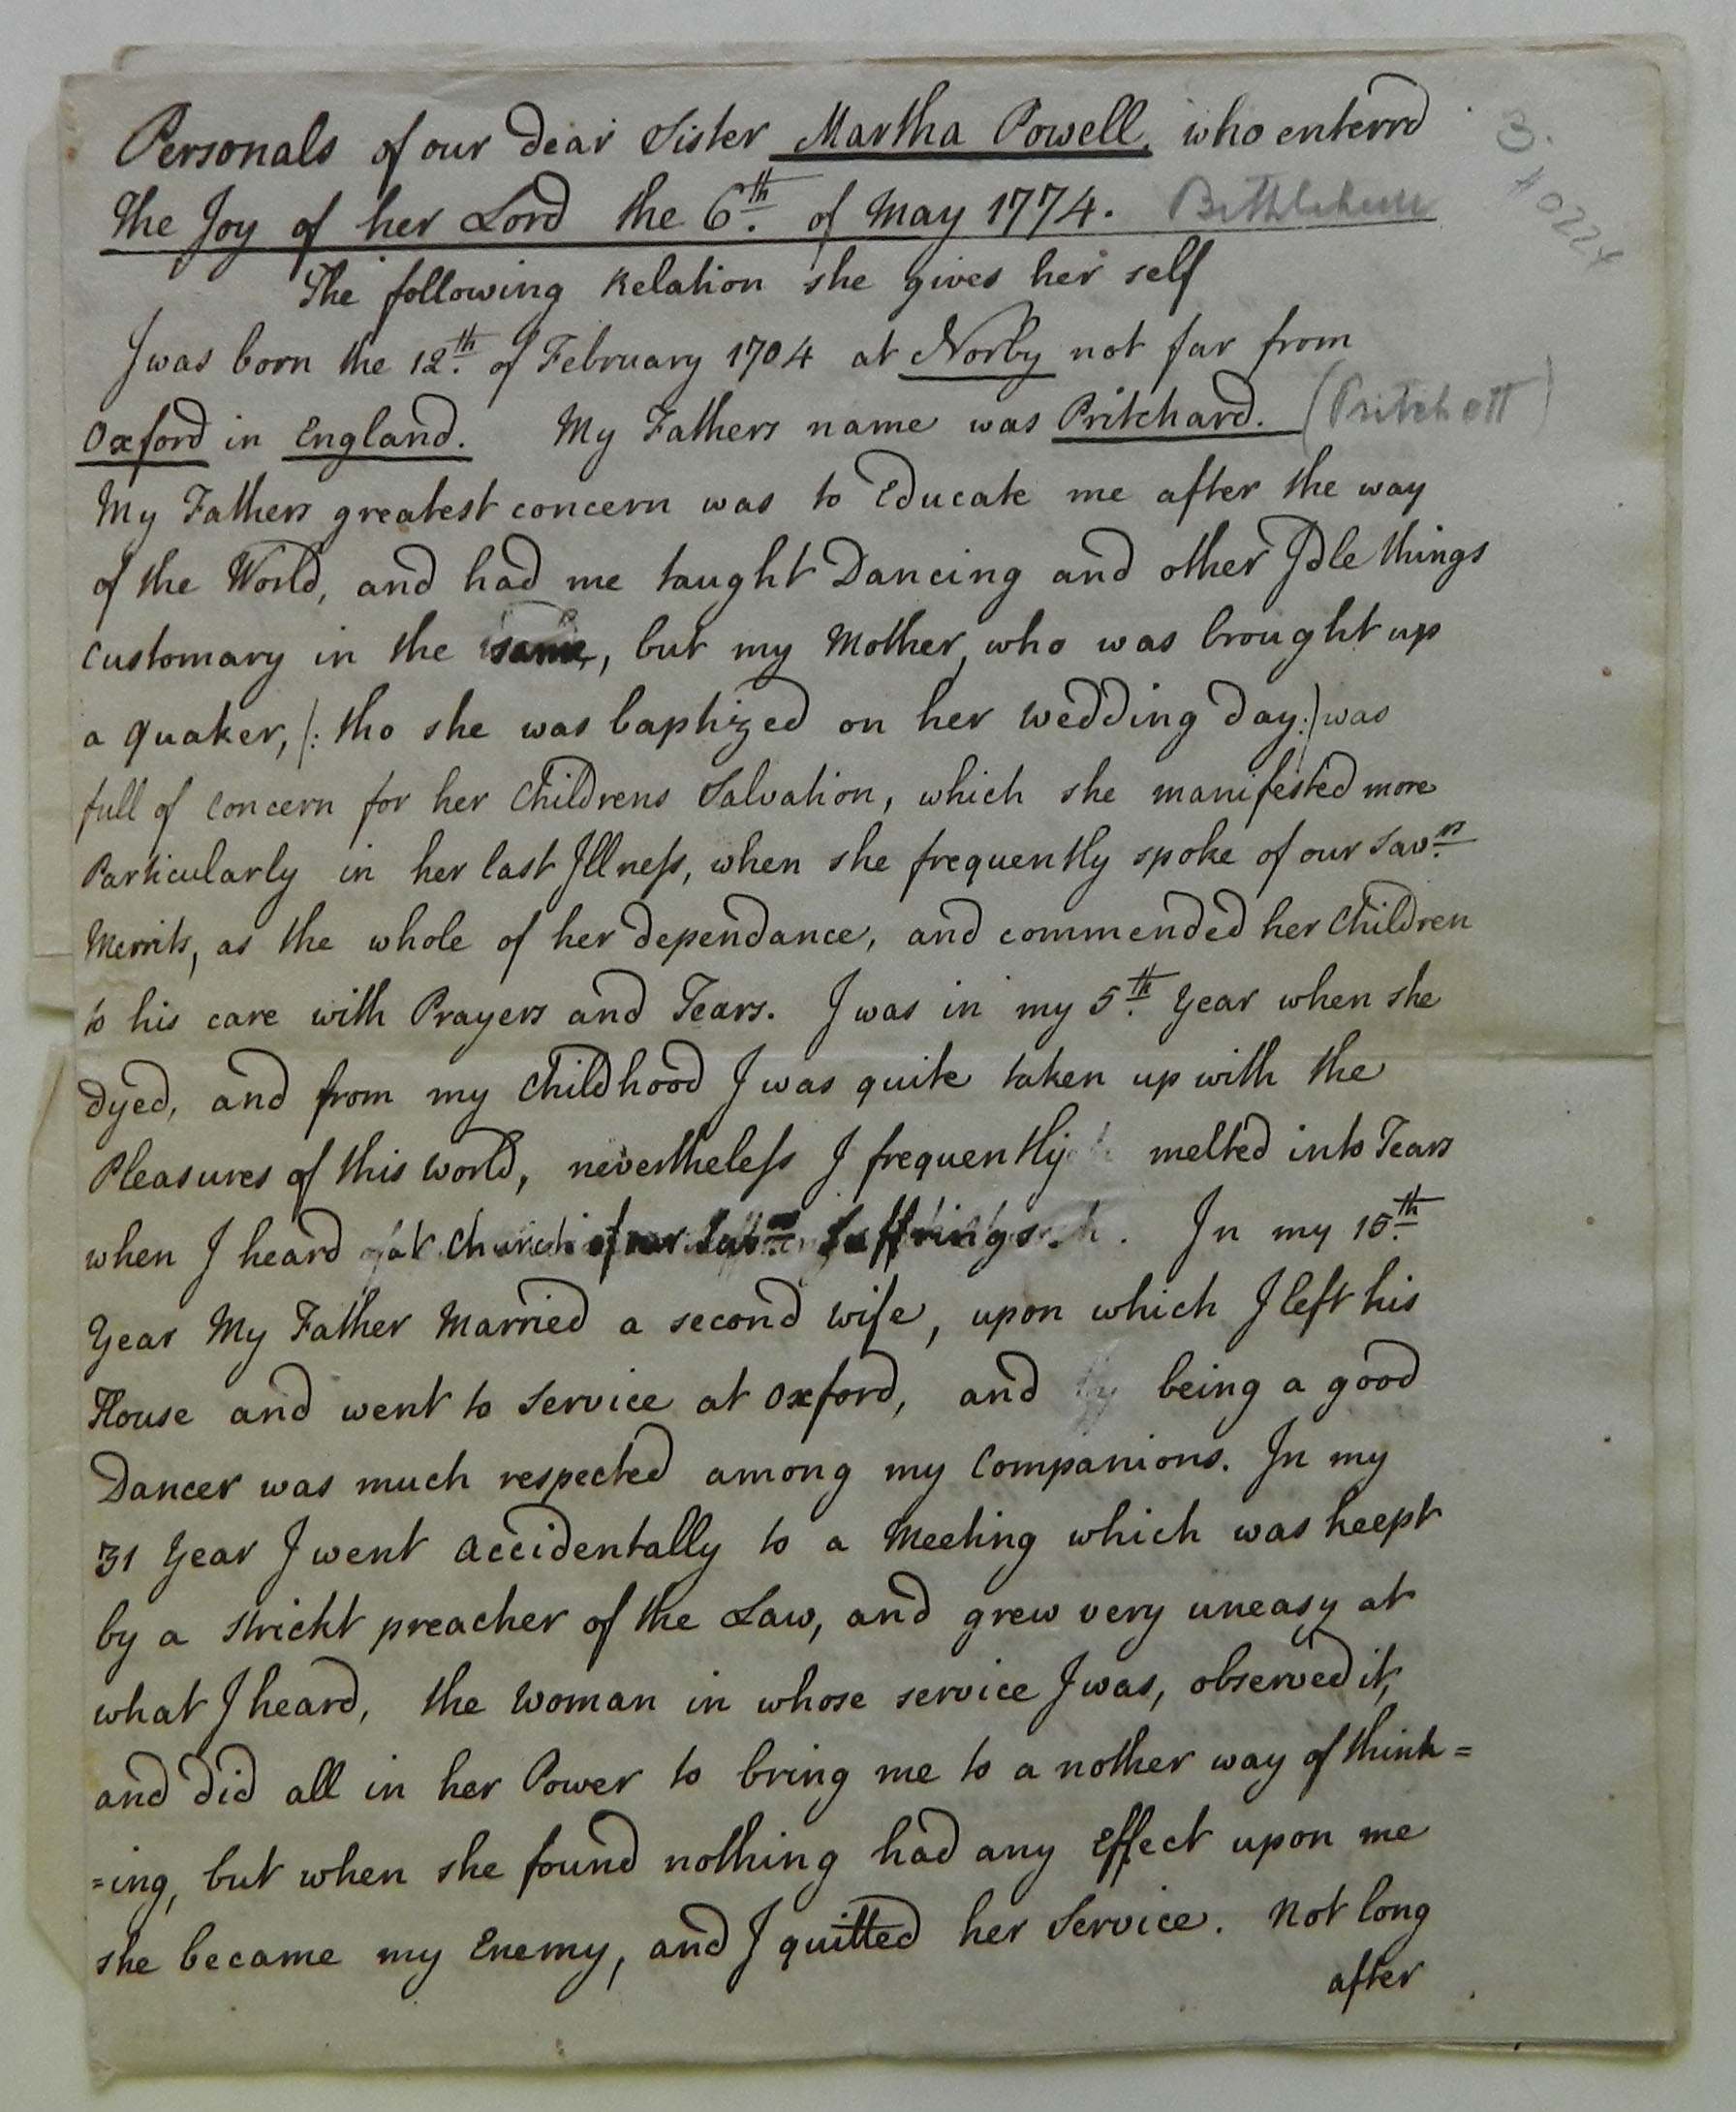 Personals of our Dear Sister Martha Powell, who enterrd
3.
the Joy of her Lord the 6th. of May 1774. Bethlehem
The following Relation she gives her self
I was born the 12th. of February 1704 at Norby not far from
Oxford in England. My Fathers name was Pritchard. (Pritchett)
My Fathers greatest concern was to Educate me after the way
of the World, and had me taught Dancing and other Idle things
customary in the same, but my Mother, who was brought up
a Quaker, /: tho she was baptized on her Wedding Day :/ was
full of Concern for her Childrens Salvation, which she manifested more
Particularly in her last Illness, when she frequently spoke of our Savrs.
Merrits, as the whole of her dependance, and commended her Children
to his care with Prayers and Tears. I was in my 5th. Year when she
dyed, and from my Childhood I was quite taken up with the
Pleasures of this World, nevertheless I frequently melted into Tears
when I heard at Church of our Savrs. Suffrings. In my 15th.
Year My Father Married a second Wife, upon which I left his
House and went to Service at Oxford, and being a good
Dancer was much respected among my Companions. In my
31 Year I went accidentally to a Meeting which was keept
by a strickt preacher of the Law, and grew very uneasy at
what I heard, the Woman in whose service I was, observed it,
and did all in her Power to bring me to a nother way of think=
=ing, but when she found nothing had any Effect upon me
she became my Enemy, and I quitted her Service. Not long
after